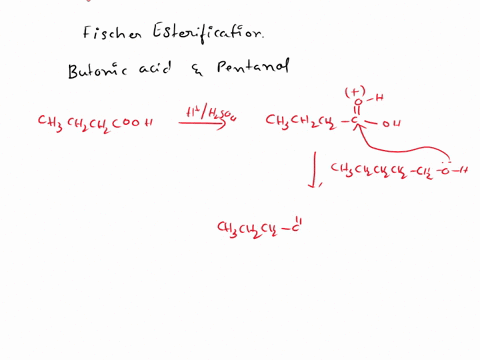 Fischer Esterification.
Butonic acid & Pentanol
(+)
O-H
CH3 CH2CH2COOH H+/H2SO4 CH3CH2CH2-C-OH
CH3CH2CH2CH2-CH2-Ö-H
CH3CH2CH2-C